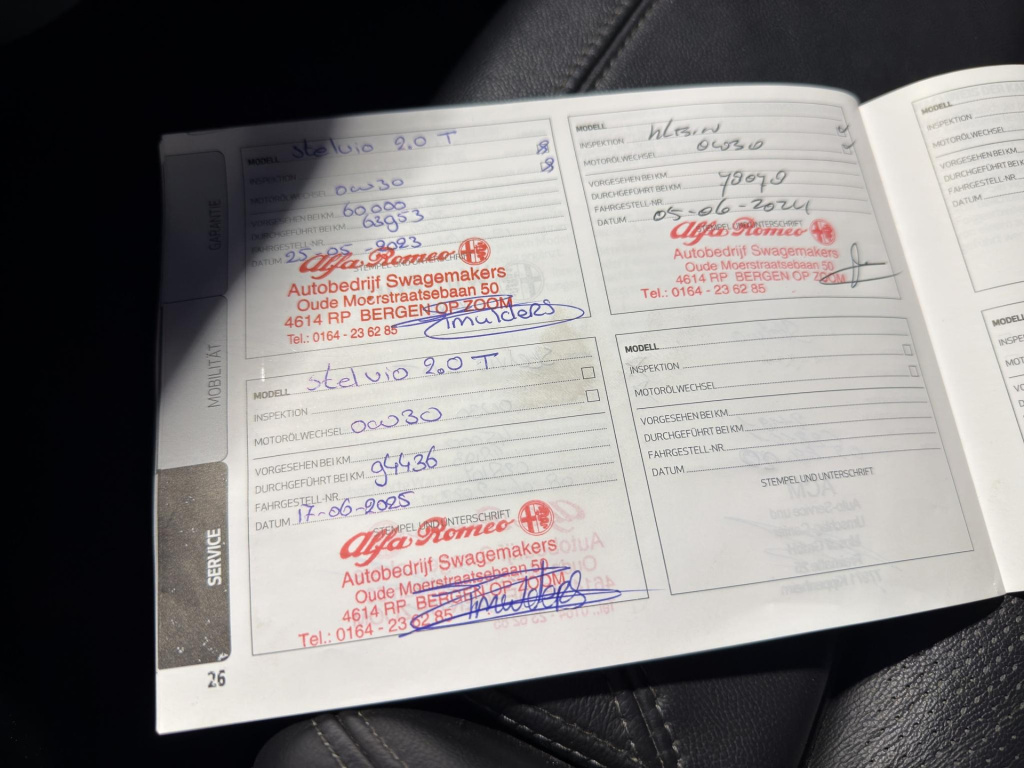 GARANTIE
MOBILITÄT
SERVICE
MODELL stelvio 2.0 T
INSPEKTION
MOTORÖLWECHSEL 0W30
VORGESEHEN BEI KM 60.000
DURCHGEFÜHRT BEI KM 63953
FAHRGESTELL-NR.
DATUM 25-05-2023
STEMPEL UND UNTERSCHRIFT
Alfa Romeo
Autobedrijf Swagemakers
Oude Moerstraatsebaan 50
4614 RP BERGEN OP ZOOM
Tel.: 0164 - 23 62 85
Tmulders
MODELL
INSPEKTION
MOTORÖLWECHSEL 0W30
VORGESEHEN BEI KM
DURCHGEFÜHRT BEI KM
FAHRGESTELL-NR.
DATUM 05-06-2024
STEMPEL UND UNTERSCHRIFT
Alfa Romeo
Autobedrijf Swagemakers
Oude Moerstraatsebaan 50
4614 RP BERGEN OP ZOOM
Tel.: 0164 - 23 62 85
MODELL stelvio 2.0 T
INSPEKTION
MOTORÖLWECHSEL 0W30
VORGESEHEN BEI KM
DURCHGEFÜHRT BEI KM 94436
FAHRGESTELL-NR.
DATUM 17-06-2025
STEMPEL UND UNTERSCHRIFT
Alfa Romeo
Autobedrijf Swagemakers
Oude Moerstraatsebaan 50
4614 RP BERGEN OP ZOOM
Tel.: 0164 - 23 62 85
Tmulders
MODELL
INSPEKTION
MOTORÖLWECHSEL
VORGESEHEN BEI KM
DURCHGEFÜHRT BEI KM
FAHRGESTELL-NR.
DATUM
STEMPEL UND UNTERSCHRIFT
26
MODELL
INSPEKTION
MOTORÖLWECHSEL
VORGESEHEN BEI KM
DURCHGEFÜHRT
FAHRGESTELL-NR.
DATUM
MODELL
INSPEKTION